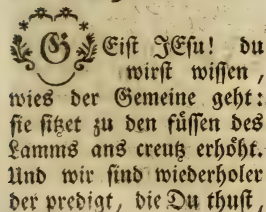 GEiſt JEſu! du
wirſt wiſſen,
wies der Gemeine geht:
ſie ſitzet zu den füſſen des
Lamms ans creutz erhöht.
Und wir ſind wiederholer
der predigt, die Du thuſt,